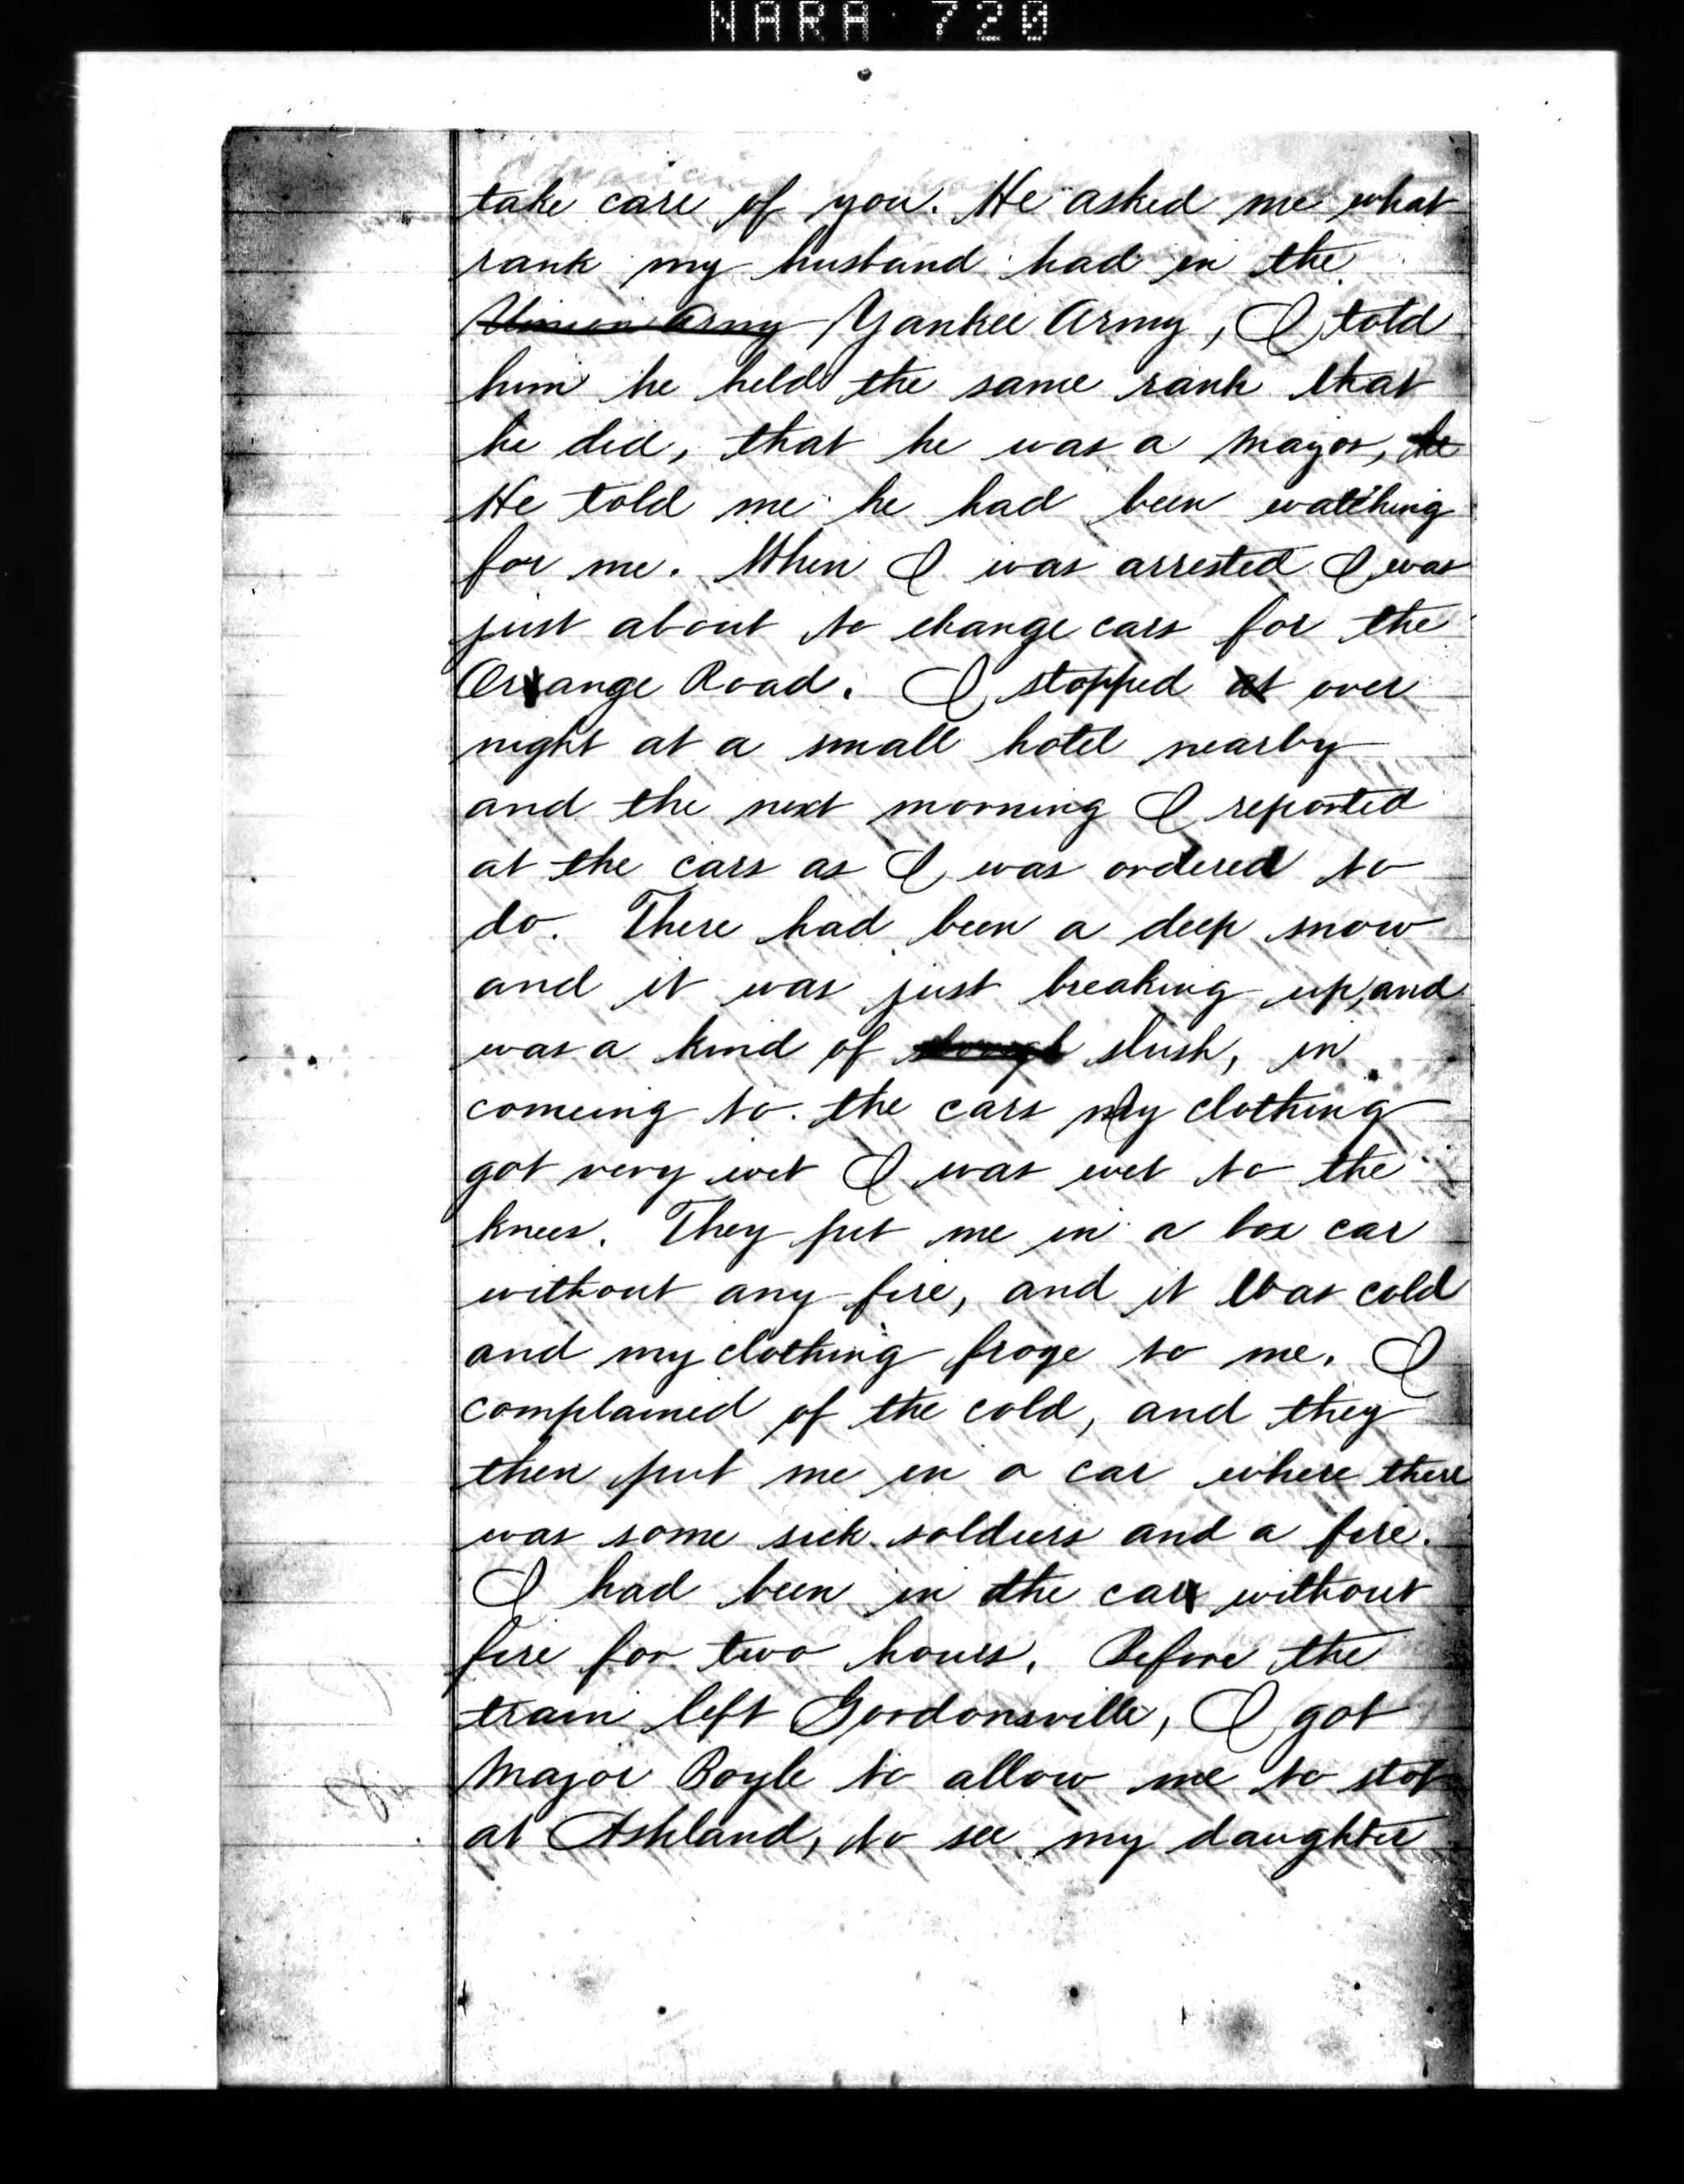 NARA 720
take care of you. He asked me what
rank my husband had in the
Union Army Yankee Army, I told
him he held the same rank that
he did, that he was a Mayor, he
He told me he had been watching
for me. When I was arrested I was
just about to change cars for the
Orange Road. I stopped at over
night at a small hotel nearby
and the next morning I reported
at the cars as I was ordered to
do. There had been a deep snow
and it was just breaking up, and
was a kind of slush, in
comeing to the cars my clothing
got very wet I was wet to the
knees. They put me in a box car
without any fire, and it was cold
and my clothing froze to me. I
complained of the cold, and they
then put me in a car where there
was some sick soldiers and a fire.
I had been in the car without
fire for two hours. Before the
train left Gordonsville, I got
Major Boyle to allow me to stop
at Ashland, to see my daughter